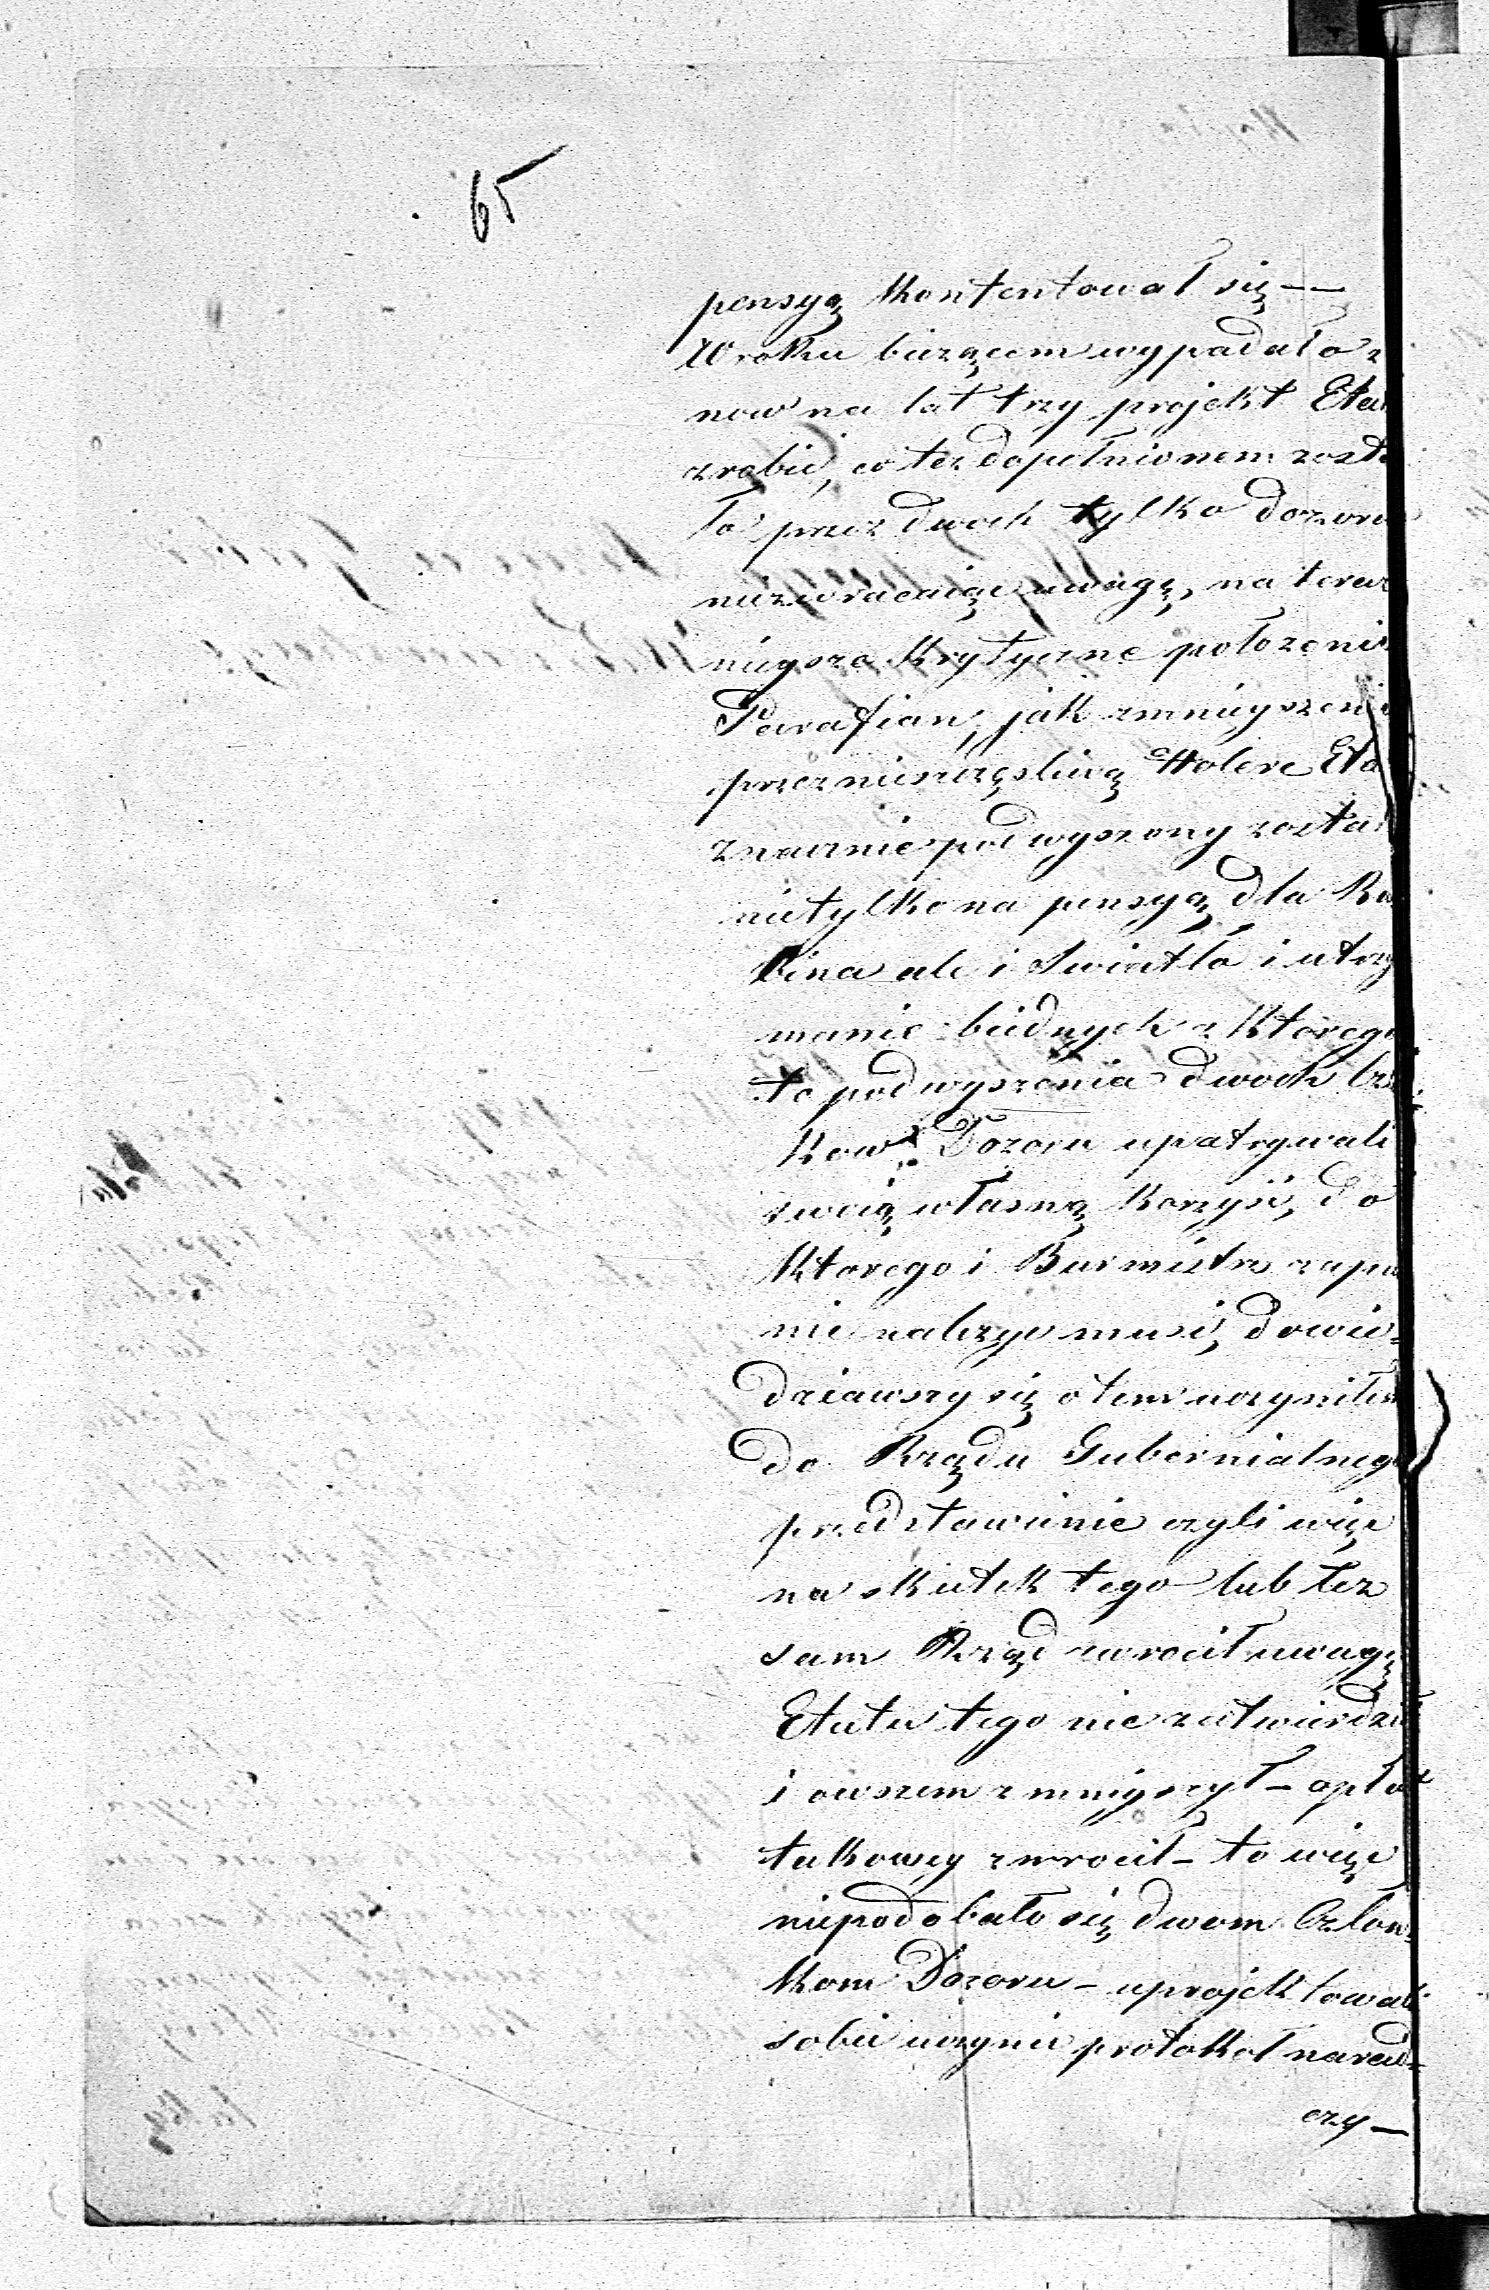 65
pensyą kontentował się ——
W roku bieżącem wypadało z
now na lat trzy projekt Eta
zrobić, co też dopełnionem zosta
ło przez dwoch tylko dozorc
niezwracaiąc uwagę, na teraz
nieysze krytyczne położenie
Parafian, jak zmnieyszeni
przez nieszczęśliwą Holerę Eta
znacznie podwyszony został
nietylko na pensyą dla Ra
bina ale i Swiatło i utrzy
manie biednych z ktorego
to podwyszenia dwoch Czł
kow Dozoru upatrywali
swoią własną korzyść, do
ktorego i Burmistrz zupeł
nie należyc musi, dowie-
dziawszy się o tem uczyniłem
do Rządu Gubernialnego
przedstawienie czyli więc
na skutek tego lub też
sam Rząd zwrocił uwagę
Etatu tego nie zatwierdził
i owszem zmnieyszył – opłat
takowey zwrocił – to więc
niepodobało się dwom Człon-
kom Dozoru – uprojektowali
sobie uczynić protokoł narad-
czy —